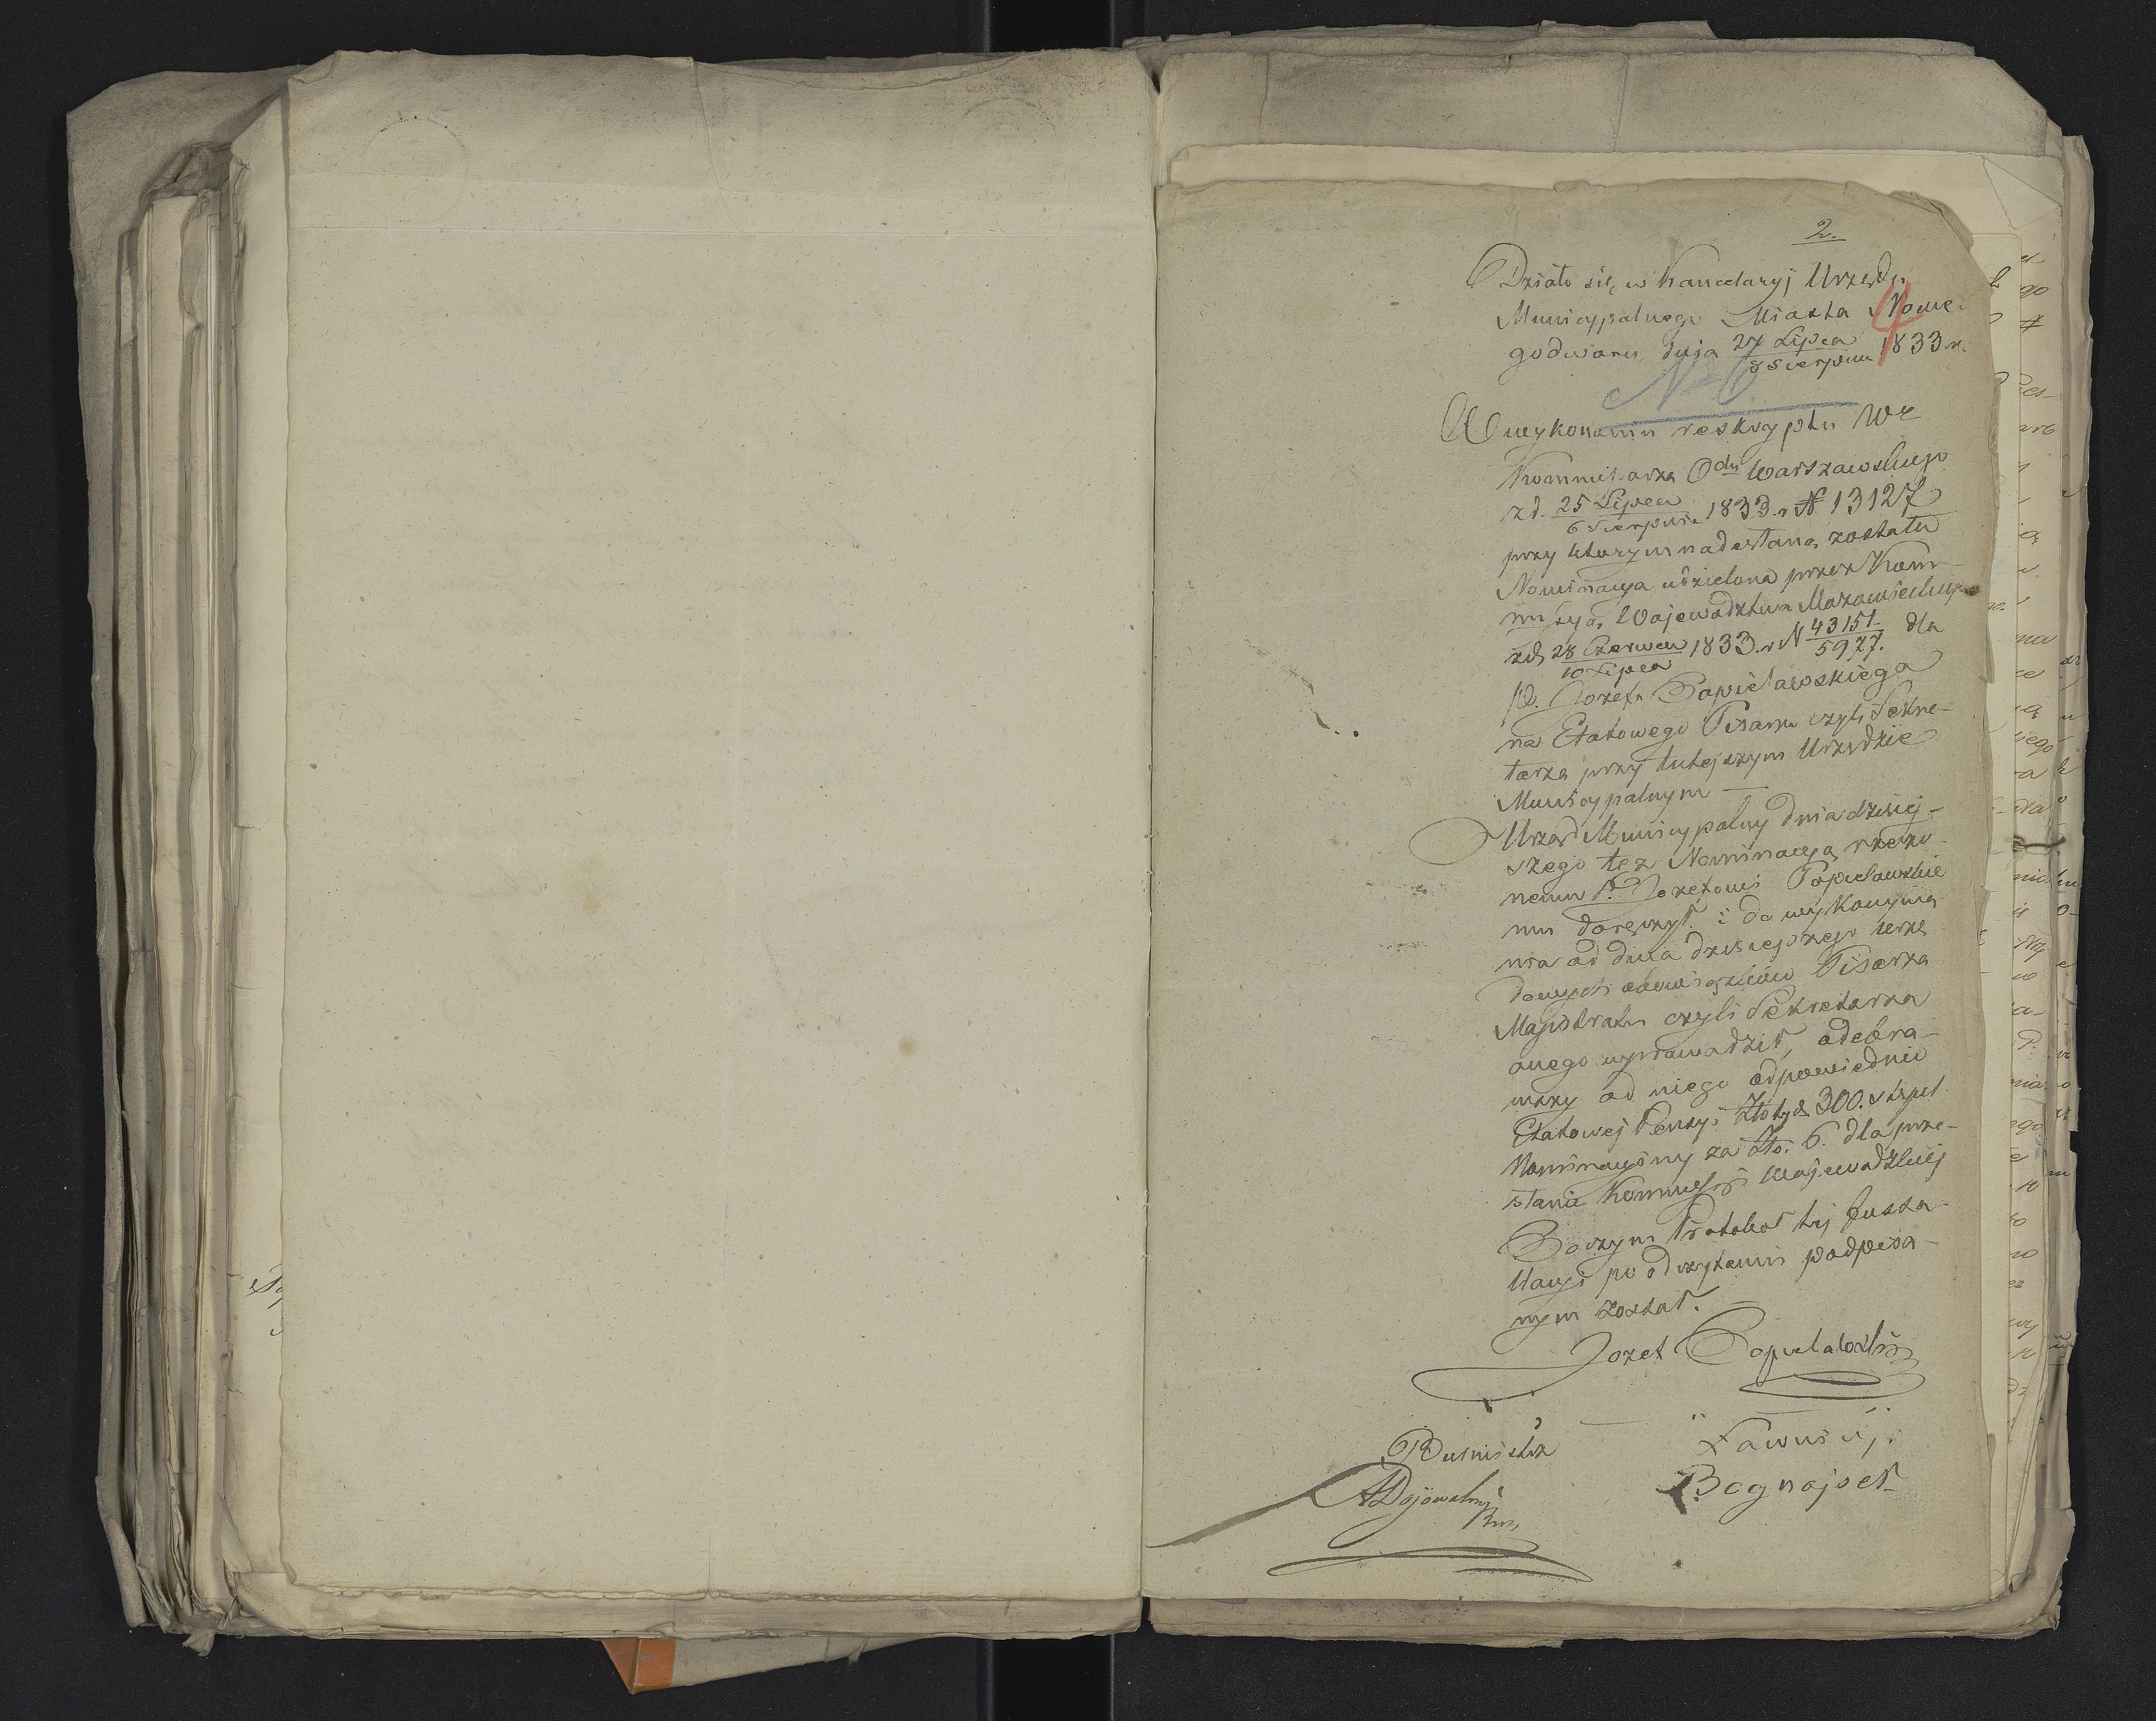 2.
4
Działo się w Kancelaryj Urzędu
Municypalnego Miasta Nowe-
godworu dnia 27 Lipca / 8 Sierpnia 1833 r.
N 6
W wykonaniu reskryptu We
Kommissarza Odu Warszawskiego
z d. 25 Lipca / 6 Sierpnia 1833. r N 13127
przy którym nadesłaną została
Nominacya udzielona przez Kom-
missyą Wojewodztwa Mazowieckiego
z d. 28 Czerwca / 10 Lipca 1833. r N 43151. / 5977. dla
P. Jozefa Popielawskiego
na Etatowego Pisarza czyli Sekre-
tarza przy tutejszym Urzędzie
Municypalnym —
Urząd Municypalny dnia dzisiej-
szego też Nominacyą rzeczo-
nemu P. Jozefowi Popielawskie
mu doręczył. i do wykonywa
nia od dnia dzisiejszego urzę
dowych obowiązków Pisarza
Magistratu czyli Sekretarza
onego wprowadził, odebra-
wszy od niego odpowiednio
Etatowej Pensyi Złotych 300. stępel
Nominacyiny za Złp. 6. dla prze-
słania Kommissyi Wojewodzkiej
Poczym Protokoł tej Insta-
llacyi po odczytaniu podpisa-
nym został.
Jozef Popielawski
Burmistrz
Ławnicy.
Bognajset